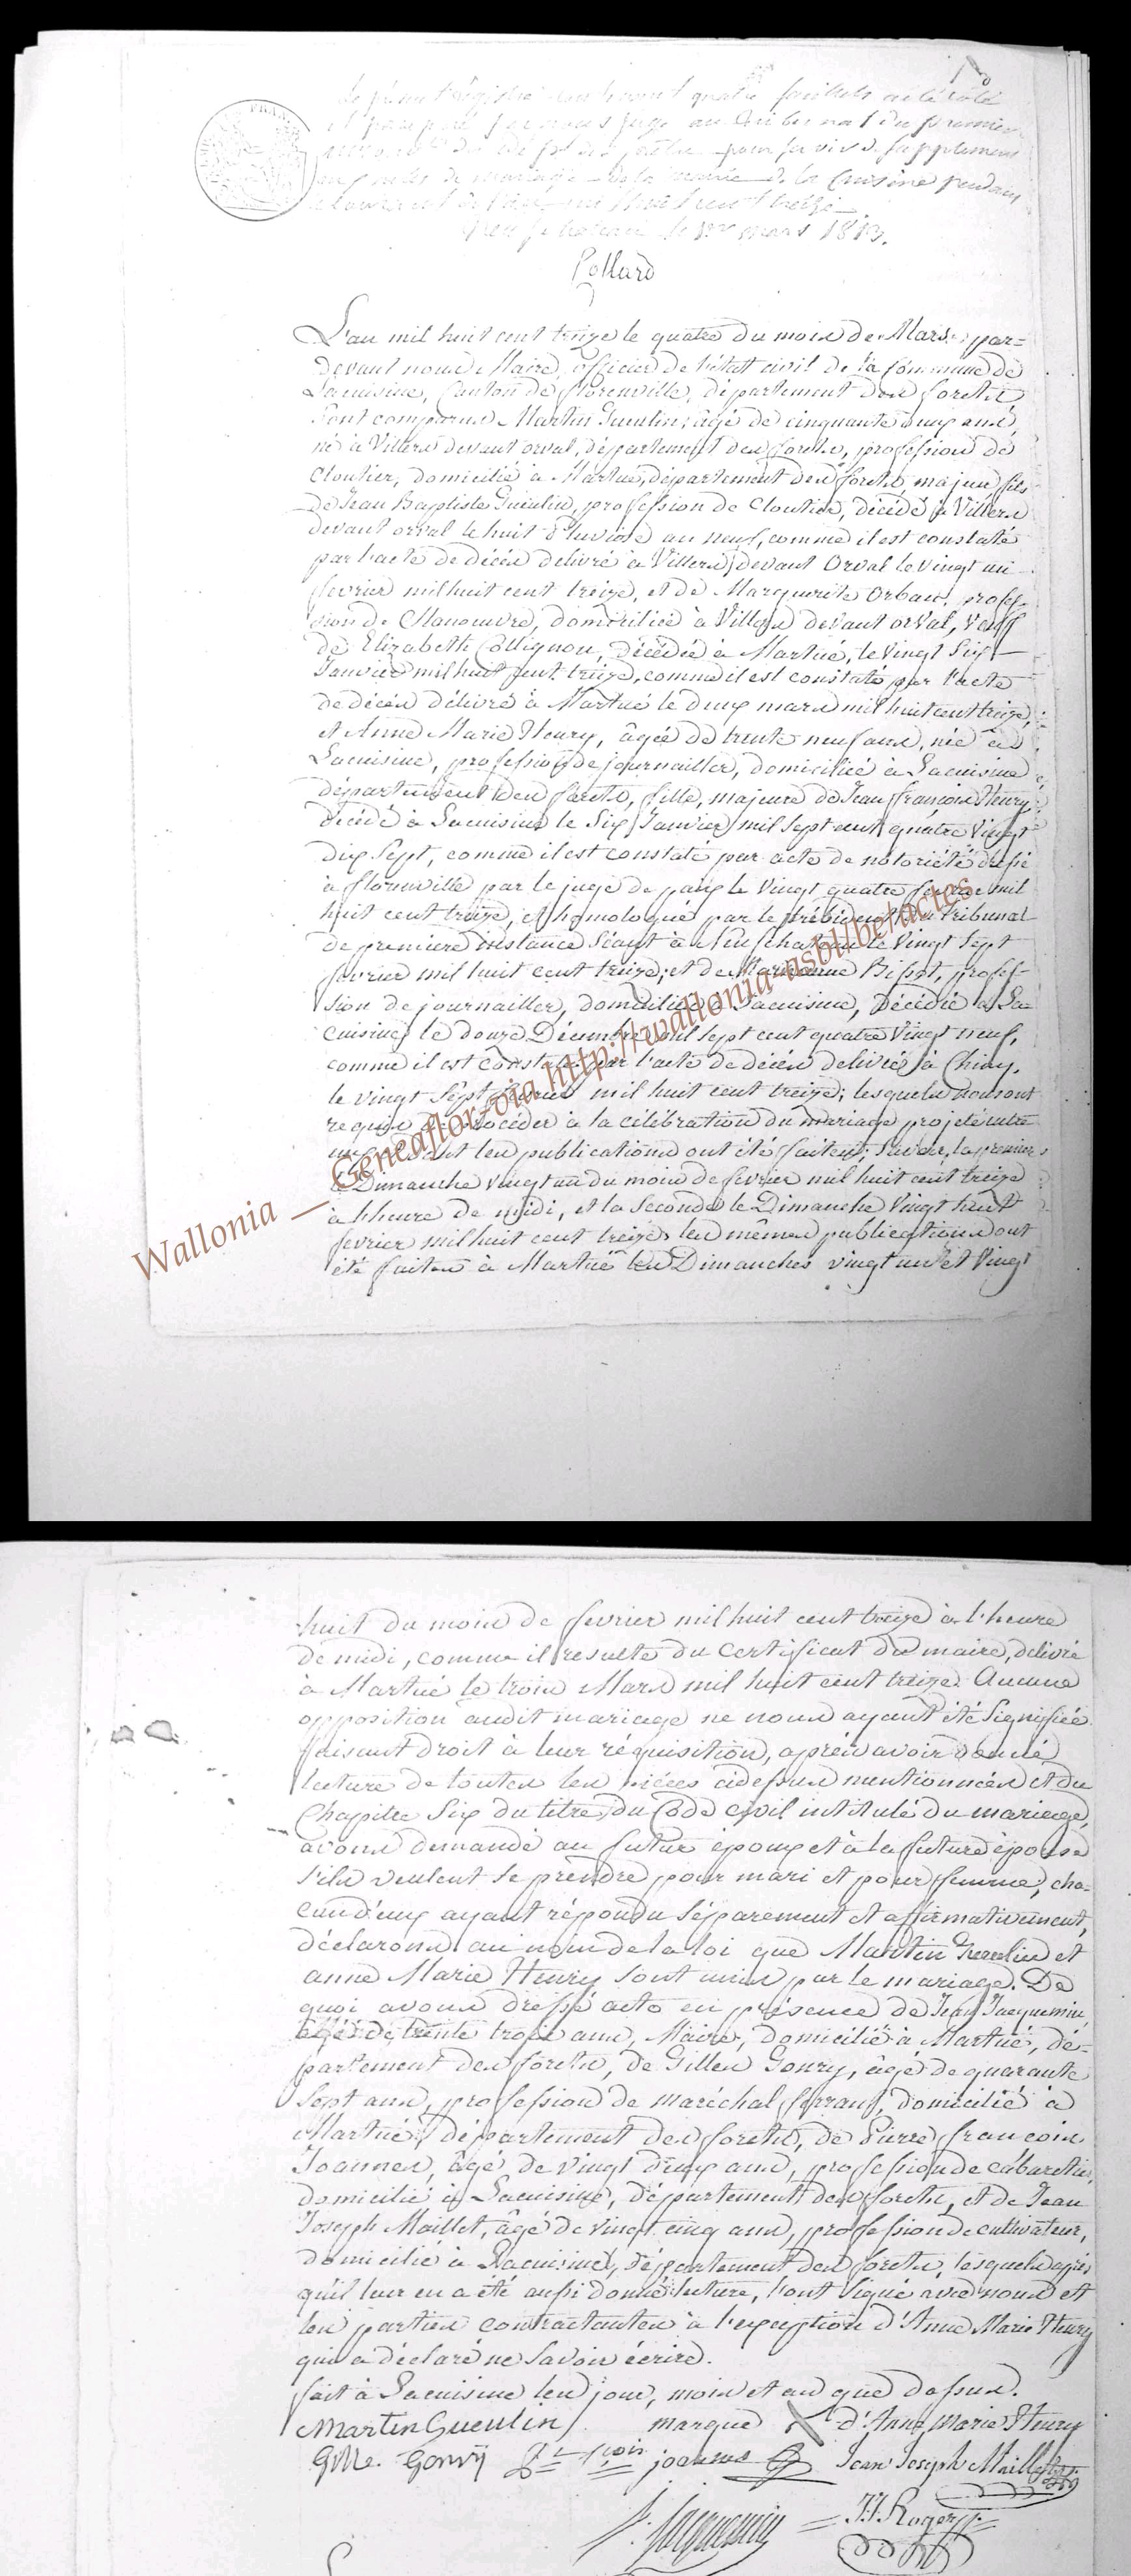 le présent registre contenant quatre feuillets a été coté
et paraphé par nous juge au tribunal du premier
pour servir de supplément
de mariage de la mairie de la Cuisine pendant
mil huit cent treize
le 1er mars 1813.
Pollard
L'an mil huit cent treize le quatre du mois de Mars, par=
devant nous Maire, officier de l'état civil de la Commune de
Lacuisine, Canton de florenville, département des forêts
sont comparus Martin Gueulin, âgé de cinquante deux ans,
né à Villers devant orval, département des forêts, profession de
Cloutier, domicilié à Martué, département des forêts, majeur, fils
de Jean Baptiste Gueulin, profession de Cloutier, décédé à Villers
devant orval le huit Pluviose an neuf, comme il est constaté
par l'acte de décès delivré à Villers devant Orval le vingt un
fevrier mil huit cent treize, et de Marguerite Orban, profes-
sion de Manouvre, domiciliée à Villers devant orval, veuf
de Elizabeth Collignon, décédée à Martué, le vingt six
Janvier mil huit cent treize, comme il est constaté par l'acte
de décès délivré à Martué le deux mars mil huit cent treize,
et Anne Marie Henry, âgée de trente neuf ans, née à
Lacuisine, profession de journailler, domiciliée à Lacuisine
département des forêts, fille, majeure de Jean françois Henry,
décédé à Lacuisine le Six Janvier mil sept cent quatre vingt
dix Sept, comme il est constaté par acte de notoriété dressé
à florenville par le juge de paix le vingt quatre fevrier mil
huit cent treize, et homologué par le président du tribunal
de premiere instance séant à Neufchateau le vingt Sept
fevrier mil huit cent treize; et de Marianne Bissot, profes-
sion de journailler, domiciliée à Lacuisine, décédée à La-
cuisine le douze Décembre mil sept cent quatre vingt neuf,
comme il est constaté par l'acte de décès delivré à Chiny,
le vingt Sept fevrier mil huit cent treize; lesquels nous ont
requis de procéder à la célébration du mariage projeté entre
eux, dont les publications ont été faites; savoir, la premiere
le Dimanche vingt un du mois de fevrier mil huit cent treize
à l'heure de midi, et la seconde le Dimanche vingt huit
fevrier mil huit cent treize, les mêmes publications ont
été faites à Martué les Dimanches vingt un et vingt
Wallonia __ Geneaflor-oia http://wallonia-asbl/be/actes
huit du mois de fevrier mil huit cent treize à l'heure
de midi, comme il resulte du certificat du maire, delivré
à Martué le trois Mars mil huit cent treize. Aucune
opposition audit mariage ne nous ayant été signifiée
faisant droit à leur réquisition, après avoir donné
lecture de toutes les pièces cidessus mentionnées et du
Chapitre Six du titre du Code civil intitulé du mariage,
avons demandé au futur époux et à la future épouse
s'ils veulent se prendre pour mari et pour femme, cha-
cun d'eux ayant répondu séparement et affirmativement,
déclarons au nom de la loi que Martin Gueulin et
anne Marie Henry sont unis par le mariage. De
quoi avons dressé acte en présence de Jean Jacquemin,
âgé de trente trois ans, Maire, domicilié à Martué, dé-
partement des forêts, de Gilles Gonry, âgé de quarante
Sept ans, profession de maréchal ferrant, domicilié à
Martué, département des forêts, de Pierre francois
Joannes, âgé de vingt deux ans, profession de cabaretier,
domicilié à Lacuisine, département des forêts, et de Jean
Joseph Maillet, âgé de vingt cinq ans, profession de cultivateur,
domicilié à Lacuisine, département des forêts, lesquels après
qu'il leur en a été aussi donné lecture, l'ont signé avec nous et
les parties contractantes à l'exception d'Anne Marie Henry
qui a déclaré ne savoir écrire.
fait à Lacuisine les jour, mois et an que dessus.
Martin Gueulin marque X d'Anne Marie Henry
Gille Gonry joannes Jean Joseph Maillet
J. Jacquemin J.J. Roger